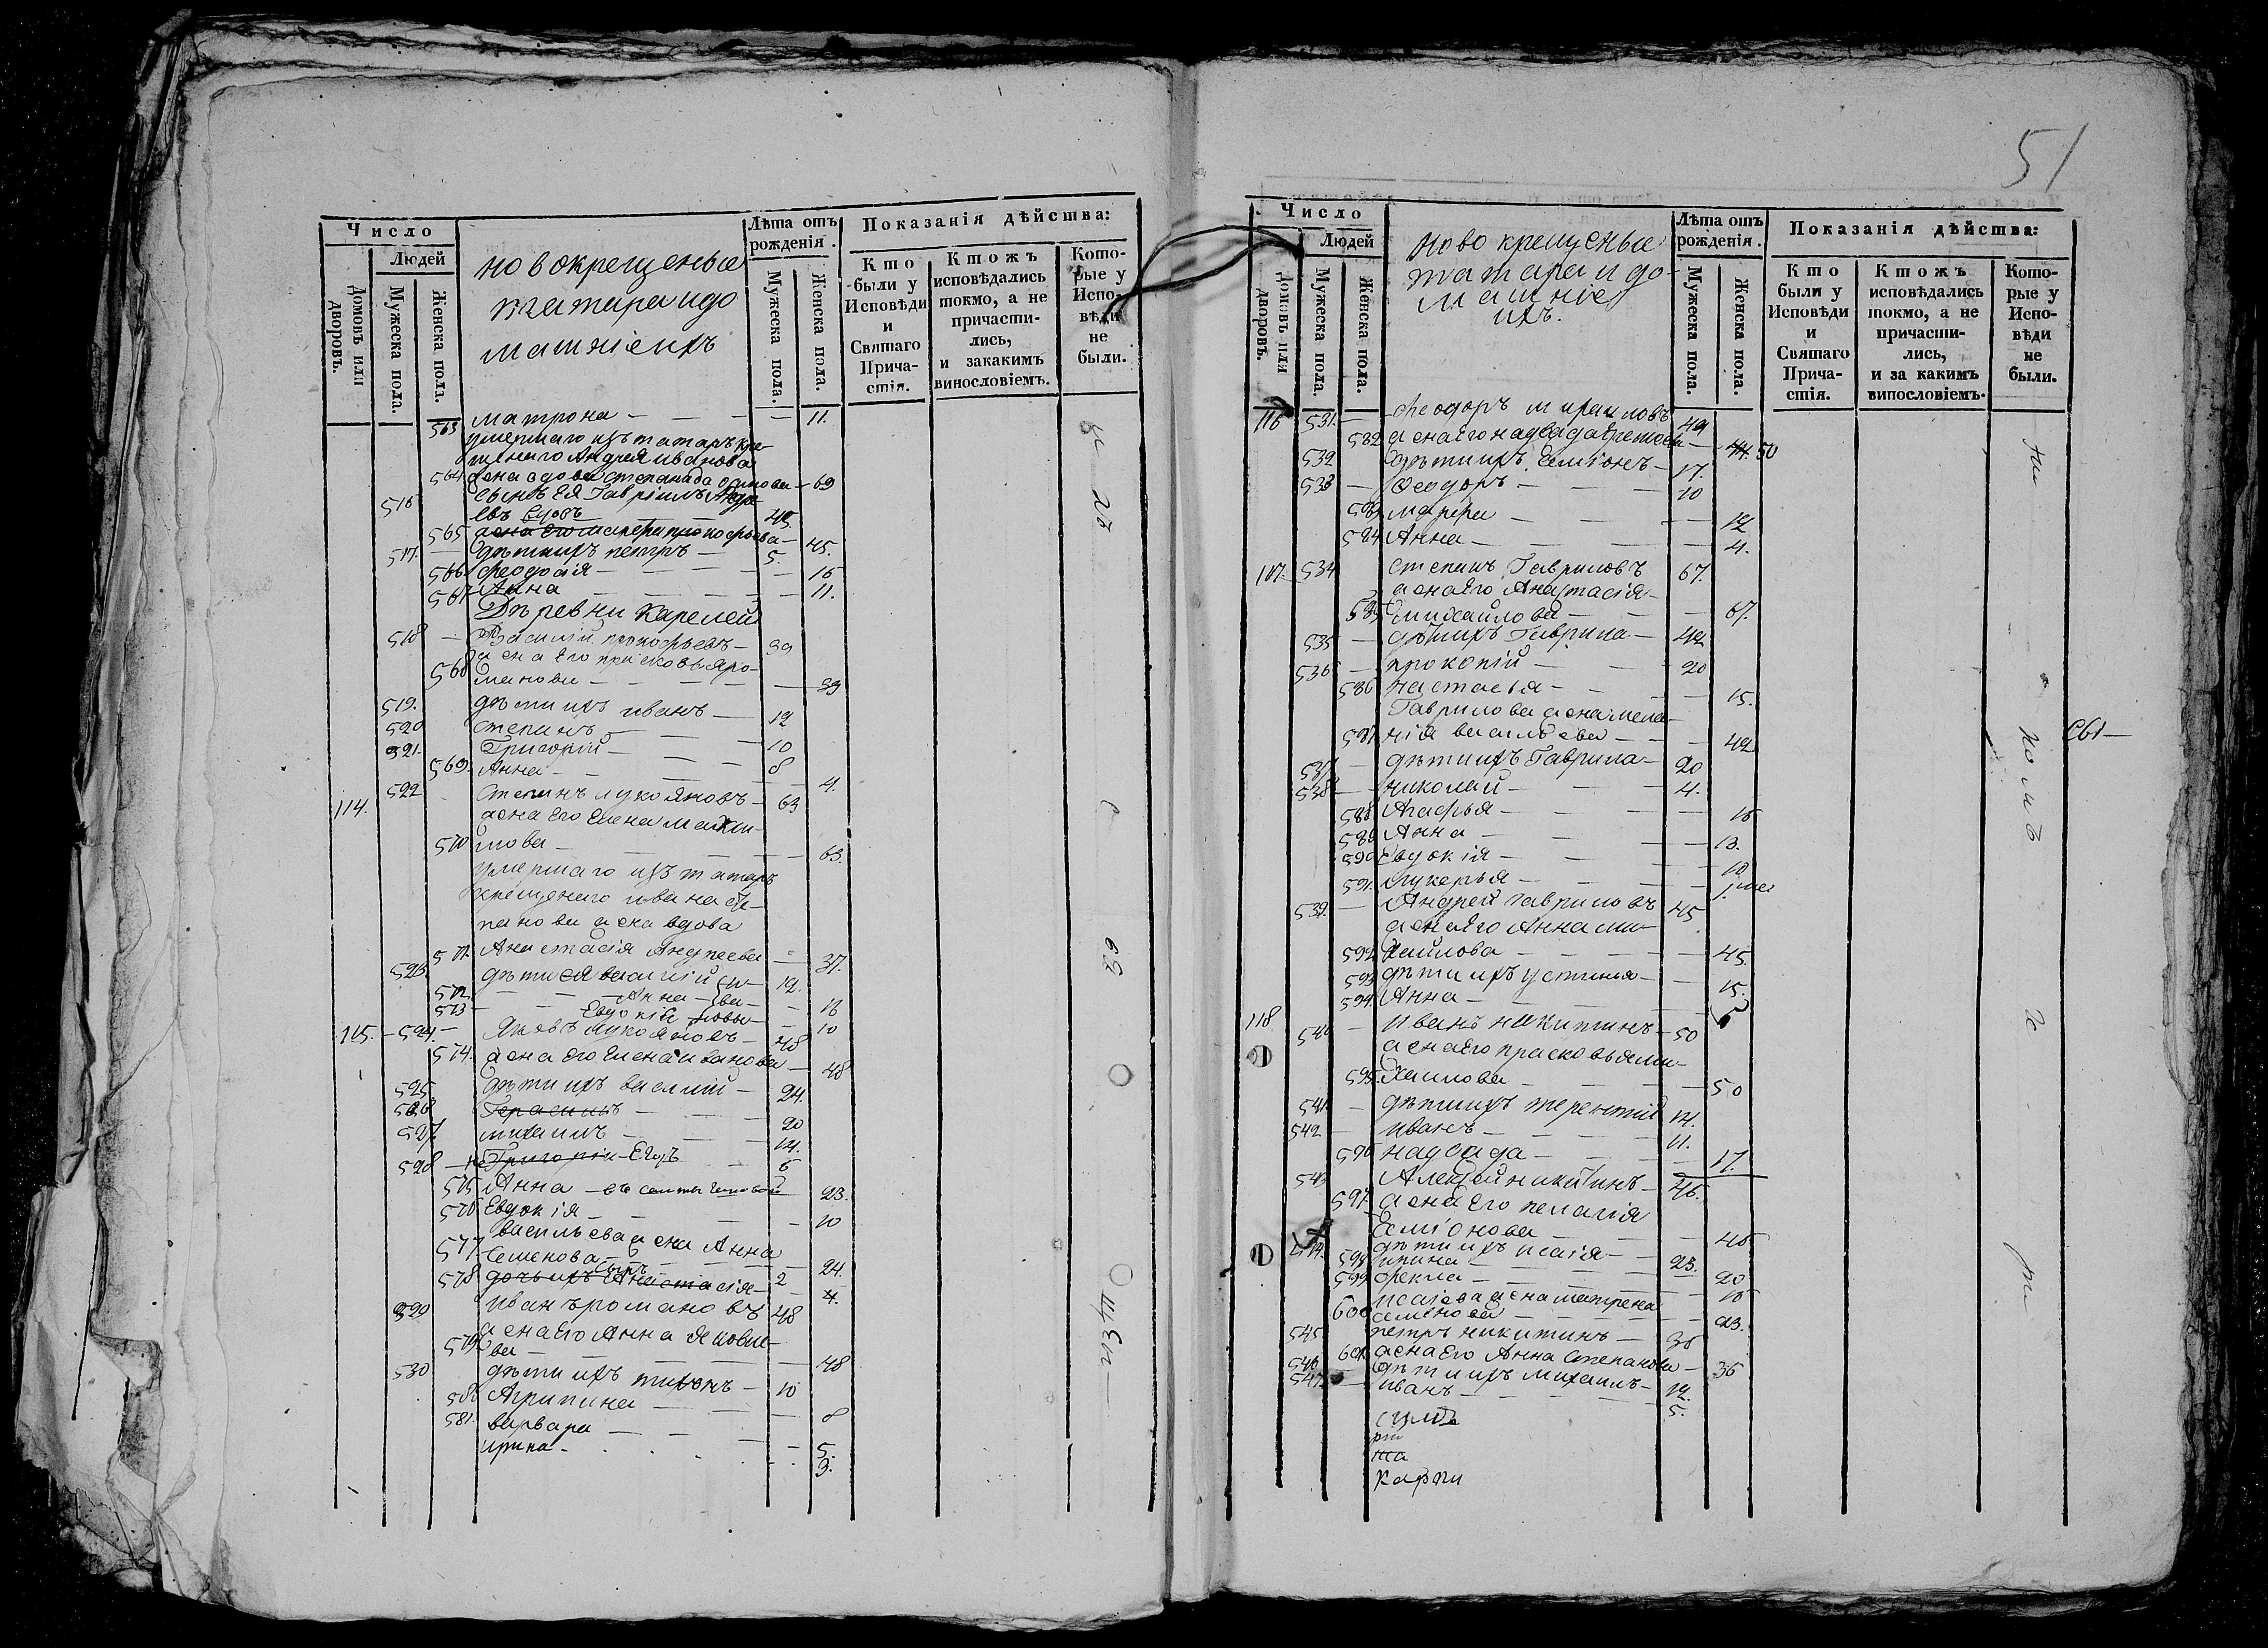 51
Число
Людей
Домовъ или дворовъ.
Мужеска пола.
Женска пола.
новокрещеные
татара и до
машніе ихъ
Лѣта отъ рожденія.
Мужеска пола.
Женска пола.
Показанія дѣйства:
Кто были у Исповѣди и Святаго Прича-стія.
Ктожъ исповѣдались токмо, а не причасти-лись, и закакимъ винословіемъ.
Кото-рые у Испо-вѣди не были.
563 матрона — 11.
умершаго изъ татаръ кре-
щенаго Андрея иванова
564 жена вдова степанида — 69
516 сынъ Ея Гавріилъ Андре
евъ вдовъ — 45
565 жена Его прокофьева — 45.
517. дѣти ихъ петръ — 5.
566 феодосія — 16
567 Анна — 11.
Деревни Карелей
518 — Василій прокофьевъ — 39
жена Его прасковья ро-
568 манова — 39
519. дѣти ихъ иванъ — 12
520 степанъ — 10
521. Григорій — 8
569. Анна — 4.
114. 522 Степанъ лукояновъ — 63
жена Его Елена михаи-
570 лова — 63.
умершаго изъ татаръ
крещенаго ивана сте-
панова жена вдова
571. Анастасія Андреева — 37.
523 дѣти ея василій — 12.
572 Анна — 16
573 Евдокія — 10
115. 524. — Яковъ лукояновъ — 48
574. жена Его Елена иванова — 48
525 дѣти ихъ василій — 24.
526 Герасимъ — 20
527 михаилъ — 14.
528 Григорій Егоръ — 6
575 Анна — 23.
576 Евдокія — 10
васильева жена Анна
577 Семенова — 24.
578 дочь ихъ Анастасія — 2 4.
529 иванъ романовъ 48
жена Его Анна яковле-
579 ва — 48
530 дѣти ихъ тихонъ — 10
580 Агрипина — 8
581. варвара — 5.
ирина — 3.
Число
Людей
Домовъ или дворовъ.
Мужеска пола.
Женска пола.
ново крещеные
татара и до-
машніе
ихъ.
Лѣта отъ рожденія.
Мужеска пола.
Женска пола.
Показанія дѣйства:
Кто были у Исповѣди и Святаго Прича-стія.
Ктожъ исповѣдались токмо, а не причасти-лись, и за какимъ винословіемъ.
Кото-рые у Испо-вѣди не были.
116 531. — феодоръ михаиловъ 49
582 жена Его — 44. 50
532 дѣти ихъ Симіонъ — 17.
533 — Феодоръ — 10
583 марфа — 12
584 Анна — 4.
117. 534 степанъ Гавриловъ 67.
жена Его Анастасія
585 михайлова — 67.
535 — дѣти ихъ Гаврила — 42
536 — прокопій — 20
586 настасья — 15.
Гаврилова жена мела-
587 нія васильева — 42
537 — дѣти ихъ Гаврила — 20
538 — николай — 4.
588 Агафья — 16
589 Анна — 13.
590 Евдокія — 10
591. лукерья — 1.
539. — Андрей Гавриловъ 45
жена Его Анна ми-
592 хайлова — 45.
593 дѣти ихъ устинья — 15.
594. Анна — 5
118 540 — иванъ никитинъ — 50
жена Его прасковья ми-
595. хаилова — 50
541. — дѣти ихъ терентій 14.
542 — иванъ — 11.
596 надежда — 17.
543 Алексѣй никитинъ — 46.
597. жена Его пелагія
Симіонова — 46
544. дѣти ихъ исаія — 23.
598 ирина — 20
599 фекла — 16
исаіева жена матрена
600 семенова — 23.
545. петръ никитинъ — 36
601. жена Его Анна Степанова — 36
546 дѣти ихъ михаилъ — 12.
547. — иванъ — 5.
карпи